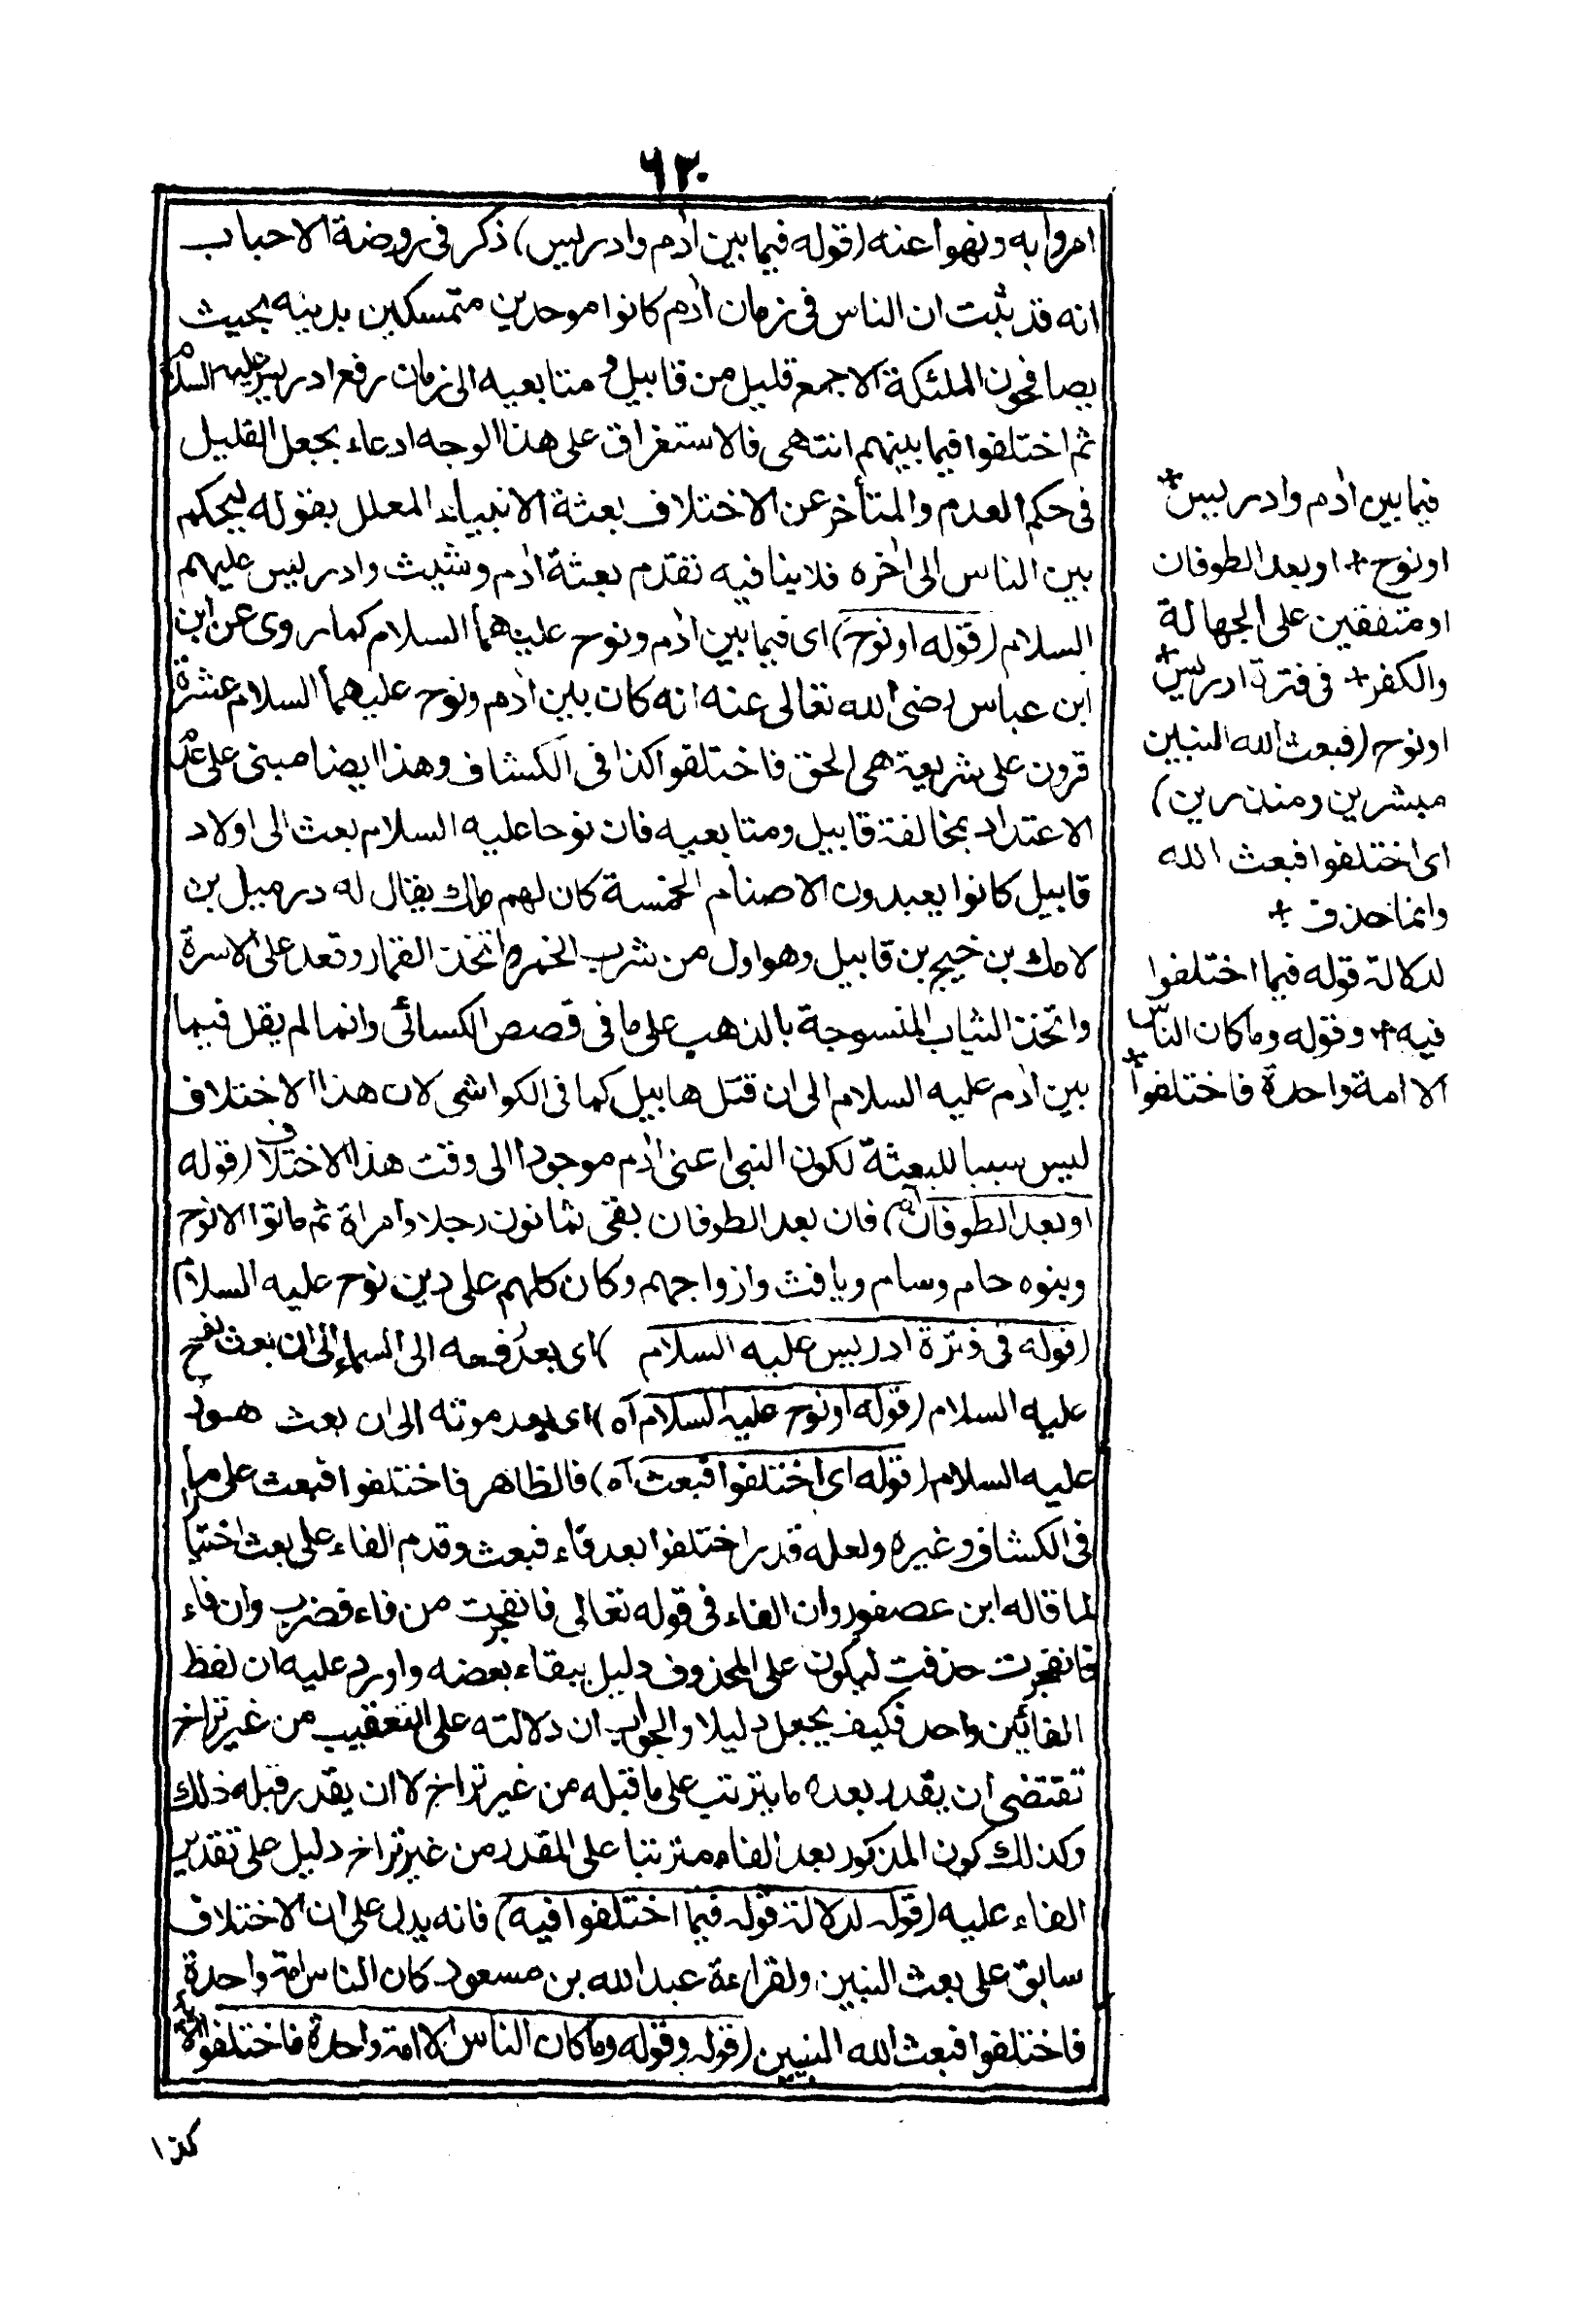 ٦٣٠
امروا به ونهوا عنه (قوله فيما بين اٰدم وادريس) ذكر فى روضة الاحباب
انه قد ثبت ان الناس فى زمان اٰدم كانوا موحدين متمسكين بدينه بحيث
يصافحون الملئكة الا جمع قليل من قابيل و متابعيه الى زمان رفع ادريس عليه السلام
ثم اختلفوا فيما بينهم انتهى فالاستغراق على هذا الوجه ادعاء بجعل القليل
فى حكم العدم والمتأخر عن الاختلاف بعثة الانبياء المعلل بقوله ليحكم
بين الناس الى اٰخره فلا ينافيه تقدم بعثة اٰدم وشيث وادريس عليهم
السلام (قوله او نوح) اى فيما بين اٰدم ونوح عليهما السلام كما روى عن ابن
ابن عباس رضى الله تعالى عنه انه كان بين اٰدم ونوح عليهما السلام عشرة
قرون على شريعة هى الحق فاختلفوا كذا فى الكشاف وهذا ايضا مبنى على عدم
الاعتداد بمخالفة قابيل ومتابعيه فان نوحا عليه السلام بعث الى اولاد
قابيل كانوا يعبدون الاصنام الخمسة كان لهم ملك يقال له درمبيل بن
لامك بن خيج بن قابيل وهو اول من شرب الخمر واتخذ القمار وقعد على الاسرة
واتخذ الثياب المنسوجة بالذهب على ما فى قصص الكسائى وانما لم يقل فيما
بين اٰدم عليه السلام الى ان قتل هابيل كما فى الكواشى لان هذا الاختلاف
ليس سببا للبعثة لكون النبى اعنى اٰدم موجودا الى وقت هذا الاختلاف (قوله
او بعد الطوفان اه) فان بعد الطوفان بقى ثمانون رجلا وامراة ثم ماتوا الا نوح
وبنوه حام وسام ويافث وازواجهم وكان كلهم على دين نوح عليه السلام
(قوله فى فترة ادريس عليه السلام) اى بعد رفعه الى السماء الى ان بعث نوح
عليه السلام (قوله او نوح عليه السلام آه) اى بعد موته الى ان بعث هود
عليه السلام (قوله اى اختلفوا فبعث آه) فالظاهر فاختلفوا فبعث على ما
فى الكشاف وغيره ولعله قدر اختلفوا بعد فاء فبعث وقدم الفاء على بعث اختيارا
لما قاله ابن عصفور وان الفاء فى قوله تعالى فانفجرت من فاء فضرب وان فاء
فانفجرت حذفت ليكون على المحذوف دليل ببقاء بعضه واورد عليه ان لفظ
الفائين واحد فكيف يجعل دليلا والجواب ان دلالته على التعقيب من غير تراخ
تقتضى ان يقدر بعده ما يترتب على ما قبله من غير تراخ لا ان يقدر قبله ذلك
وكذلك كون المذكور بعد الفاء مترتبا على المقدر من غير تراخ دليل على تقدير
الفاء عليه (قوله لدلالة قوله فيما اختلفوا فيه) فانه يدل على ان الاختلاف
سابق على بعث النبين ولقراءة عبد الله بن مسعود كان الناس امة واحدة
فاختلفوا فبعث الله النبيين (قوله وقوله وما كان الناس الا امة واحدة فاختلفوا
كذا
فيما بين اٰدم وادريس +
او نوح + او بعد الطوفان
او متفقين على الجهالة
والكفر + فى فترة ادريس +
او نوح (فبعث الله النبين
مبشرين ومنذرين)
اى اختلفوا فبعث الله
وانما حذف +
لدلالة قوله فيما اختلفوا
فيه + وقوله وما كان الناس
الا امة واحدة فاختلفوا +